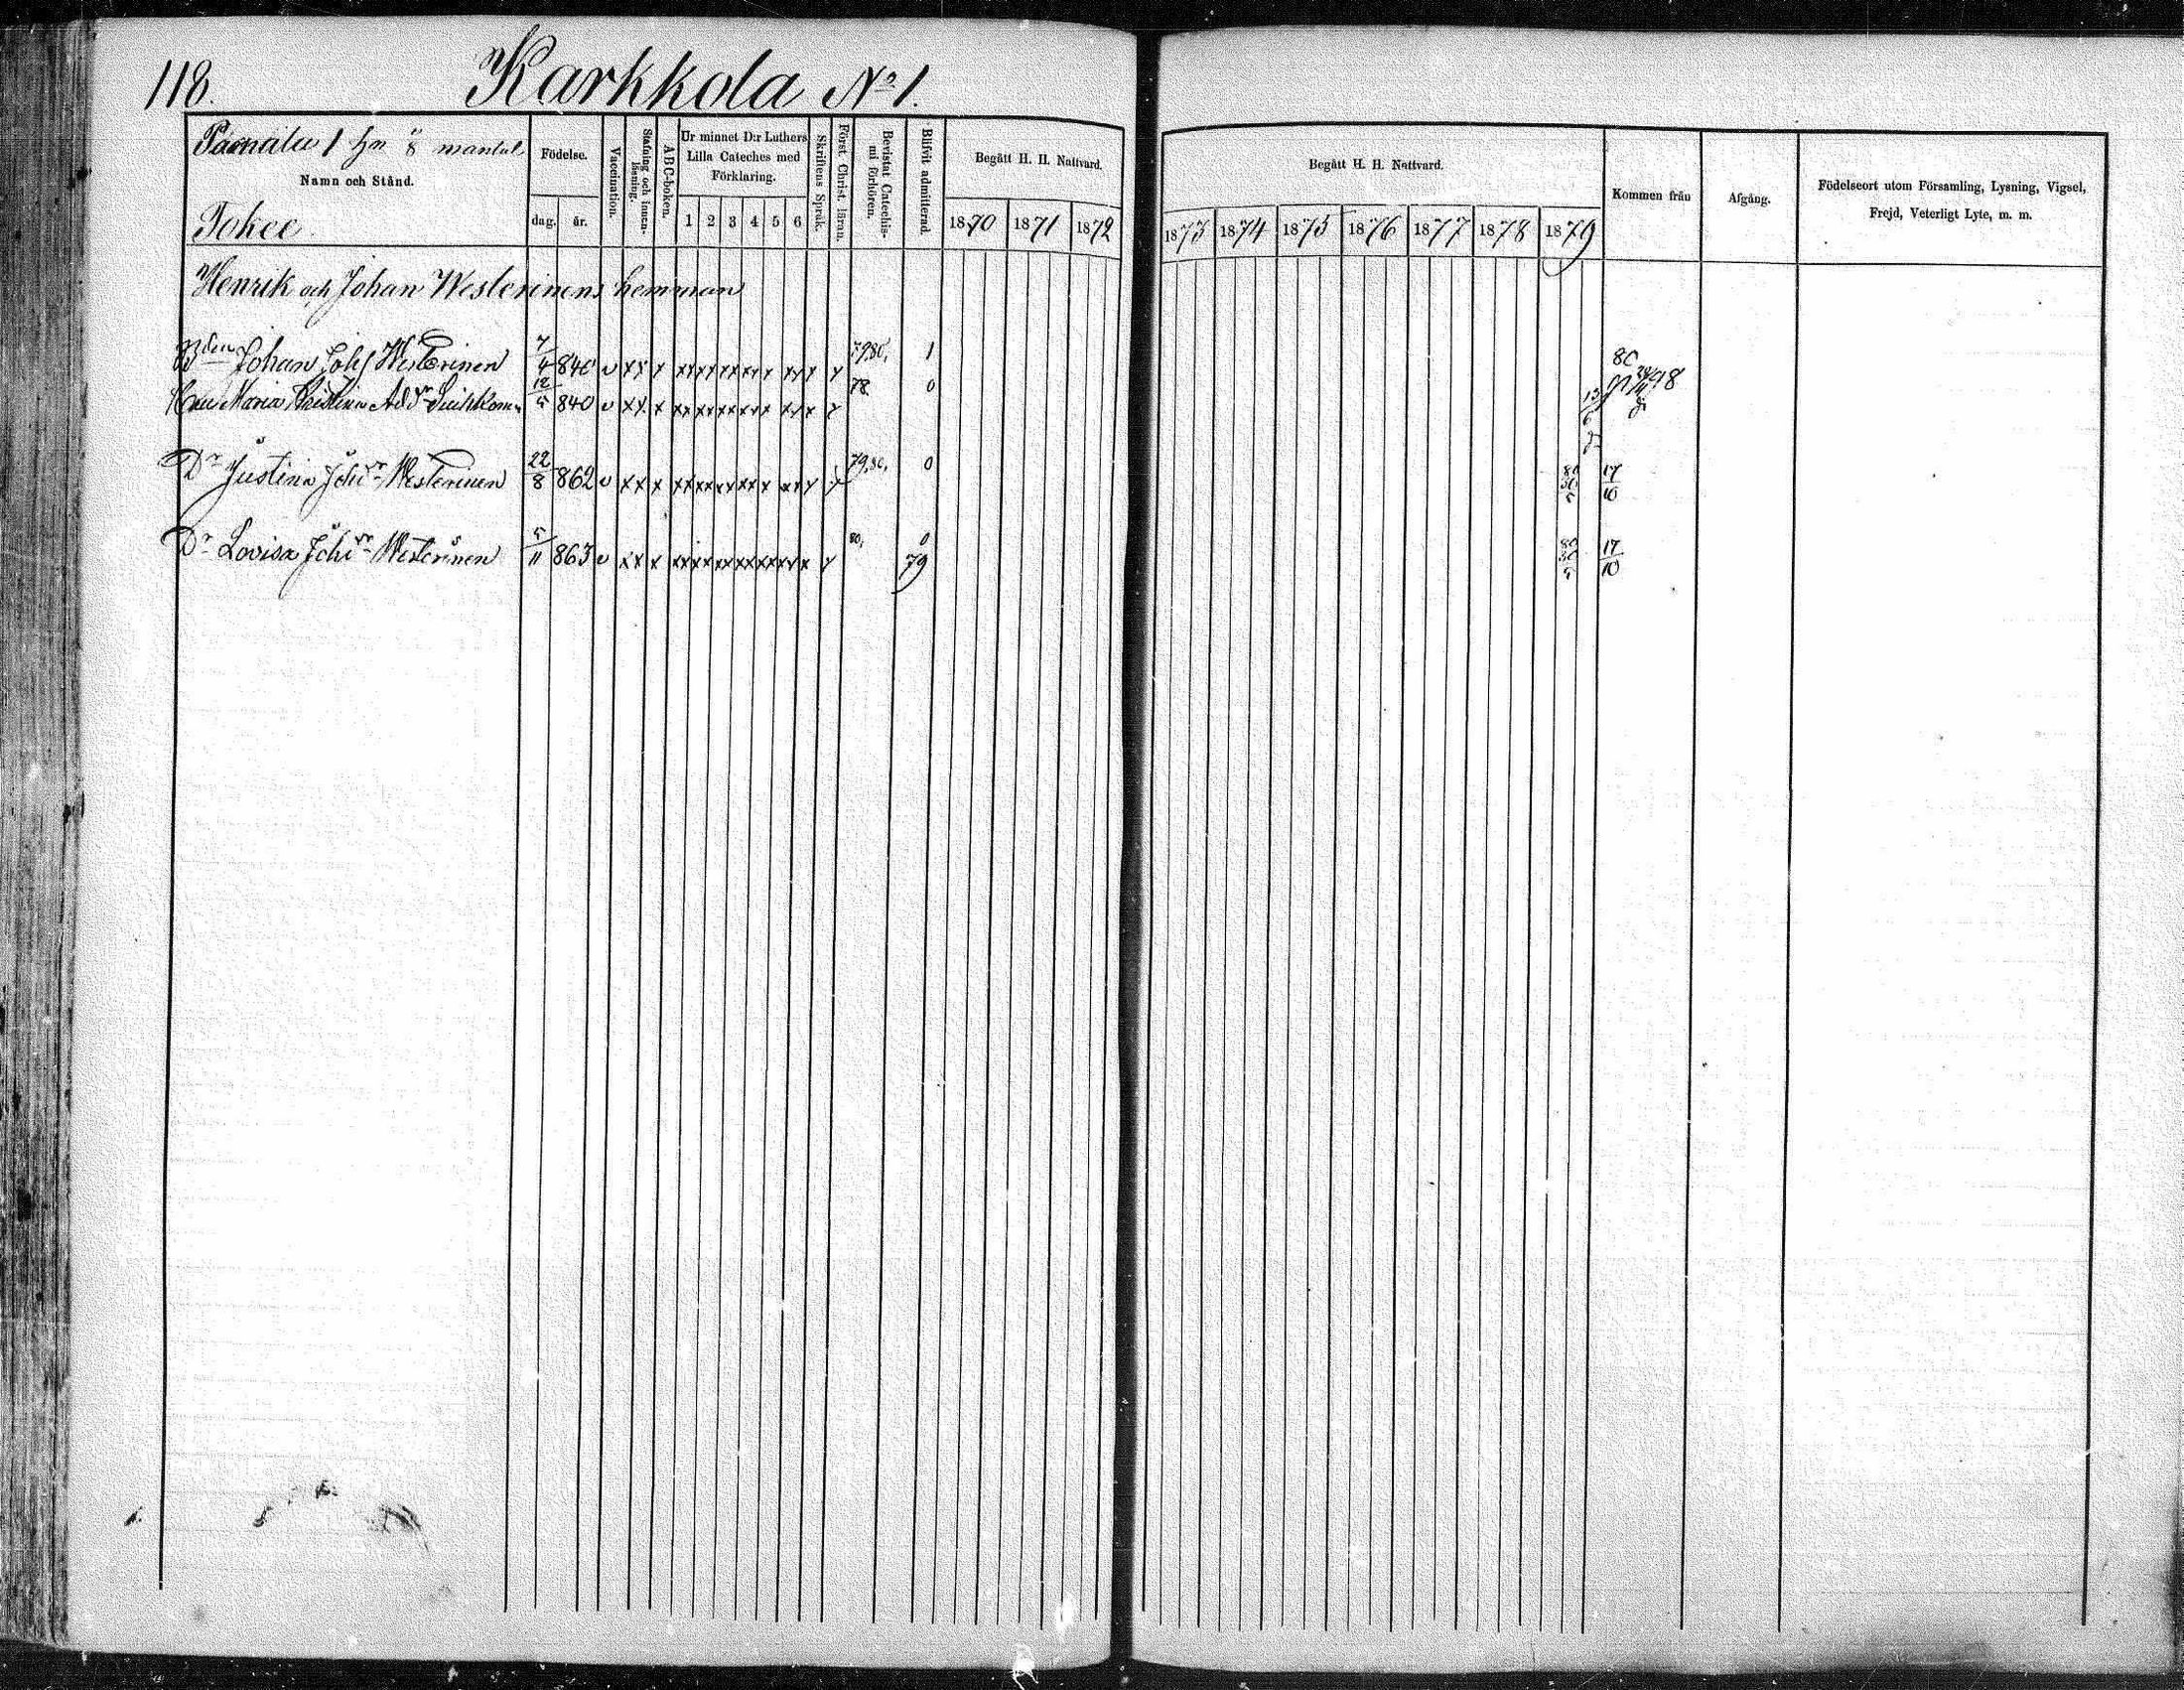 118.
Karkkola No 1.
1 hn 8 mantal
Namn och Stånd.
Födelse.
dag. år.
Vaccination.
Stafning och innan-läsning.
ABC-boken.
Ur minnet D:r Luthers Lilla Cateches med Förklaring.
1 2 3 4 5 6
Skriftens Språk.
Först. Christ. läran.
Bevistat Catechismi förhören.
Blifvit admitterad
Begått H. H. Nattvard.
1870 1871 1872
Begått H. H. Nattvard.
1873 1874 1875 1876 1877 1878 1879
Kommen från
Afgång.
Födelseort utom Församling, Lysning, Vigsel, Frejd, Veterligt Lyte, m. m.
Tokee
Henrik och Johan Westerinens hemman
Bden Johan Johs Westerinen 7/4 840 v x x x x x x x x x x x x x x x 79.80. 1 80
Maria 12/5 840 v x x x x x x x x x x x x x x x 78. 0 13/6 98
Dr Justina Johdr Westerinen 22/8 862 v x x x x x x x x x x x x x x x 79.80. 0 80 30/5 17/10
Dr Lovisa Johdr Westerinen 5/11 863 v x x x x x x x x x x x x x x x 80. 0 79 80 30/5 17/10